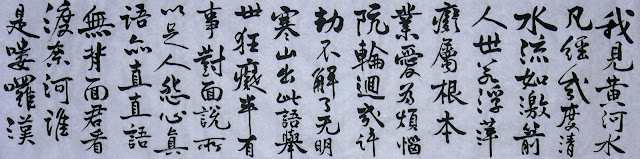 我見黃河水
凡經幾度清
水流如激箭
人世若浮萍
癡屬根本
業愛為煩惱
阬輪迴幾許
劫不解了无明
寒山出此語舉
世狂癡半有
事對面說所
以足人怨心真
語亦直直語
無背面君看
渡奈河誰
是嘍囉漢